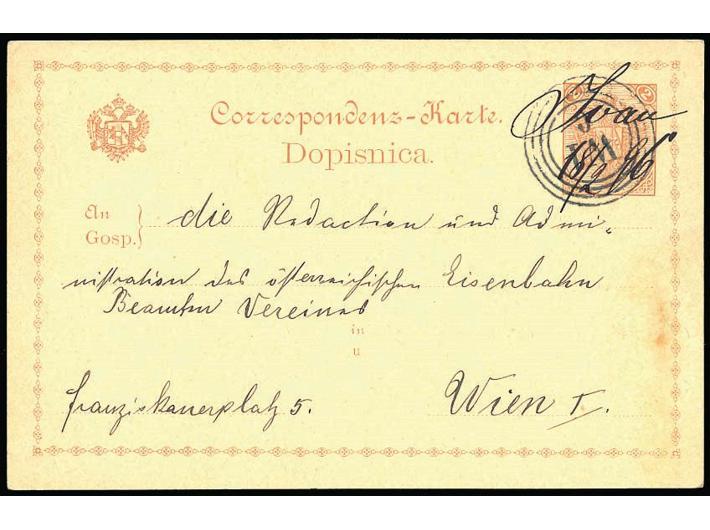 Correspondenz-Karte.
Dopisnica.
2 2
Ivan
18/2 96
An
Gosp.
die Redaction und Admi-
nistration des österreichischen Eisenbahn
Beamten Vereines
in
u
Franziskanerplatz 5.
Wien I.